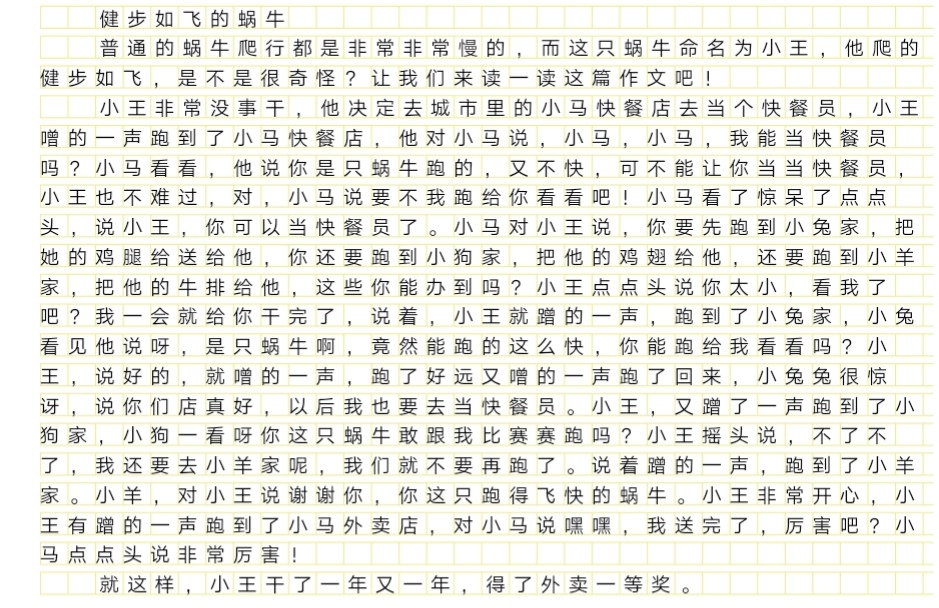 健步如飞的蜗牛
普通的蜗牛爬行都是非常非常慢的，而这只蜗牛命名为小王，他爬的
健步如飞，是不是很奇怪？让我们来读一读这篇作文吧！
小王非常没事干，他决定去城市里的小马快餐店去当个快餐员，小王
噌的一声跑到了小马快餐店，他对小马说，小马，小马，我能当快餐员
吗？小马看看，他说你是只蜗牛跑的，又不快，可不能让你当当快餐员，
小王也不难过，对，小马说要不我跑给你看看吧！小马看了惊呆了点点
头，说小王，你可以当快餐员了。小马对小王说，你要先跑到小兔家，把
她的鸡腿给送给他，你还要跑到小狗家，把他的鸡翅给他，还要跑到小羊
家，把他的牛排给他，这些你能办到吗？小王点点头说你太小，看我了
吧？我一会就给你干完了，说着，小王就蹭的一声，跑到了小兔家，小兔
看见他说呀，是只蜗牛啊，竟然能跑的这么快，你能跑给我看看吗？小
王，说好的，就噌的一声，跑了好远又噌的一声跑了回来，小兔兔很惊
讶，说你们店真好，以后我也要去当快餐员。小王，又蹭了一声跑到了小
狗家，小狗一看呀你这只蜗牛敢跟我比赛赛跑吗？小王摇头说，不了不
了，我还要去小羊家呢，我们就不要再跑了。说着蹭的一声，跑到了小羊
家。小羊，对小王说谢谢你，你这只跑得飞快的蜗牛。小王非常开心，小
王有蹭的一声跑到了小马外卖店，对小马说嘿嘿，我送完了，厉害吧？小
马点点头说非常厉害！
就这样，小王干了一年又一年，得了外卖一等奖。